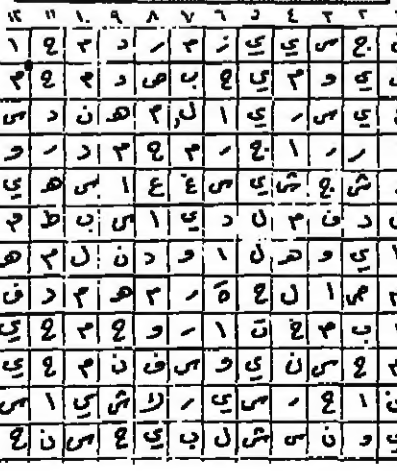 ٢ ٣ ٤ ٥ ٦ ٧ ٨ ٩ ١٠ ١١ ١٢
ج س ي ي ز م ر د م ح ا
ي و م ي ح ب ص د م ح م
ي س ر ي ا ل م ه ن د س
ر ر ا ج ر م ح م د ر و
ش ج ش ي س غ ع ا س ه ي
د ف م ل د ي ا س ب ط م
ي و ه ل ا و د ن ل م ه
ص ا ل ح ة ر م ه م د ف
ب م خ ت ا ر و ح م ح ي
ح س ن ي و س ف ن م ح ي
ا ح ر س ي ر لا ش ي ا س
و ن س ش ل ب ي ح س ن ح